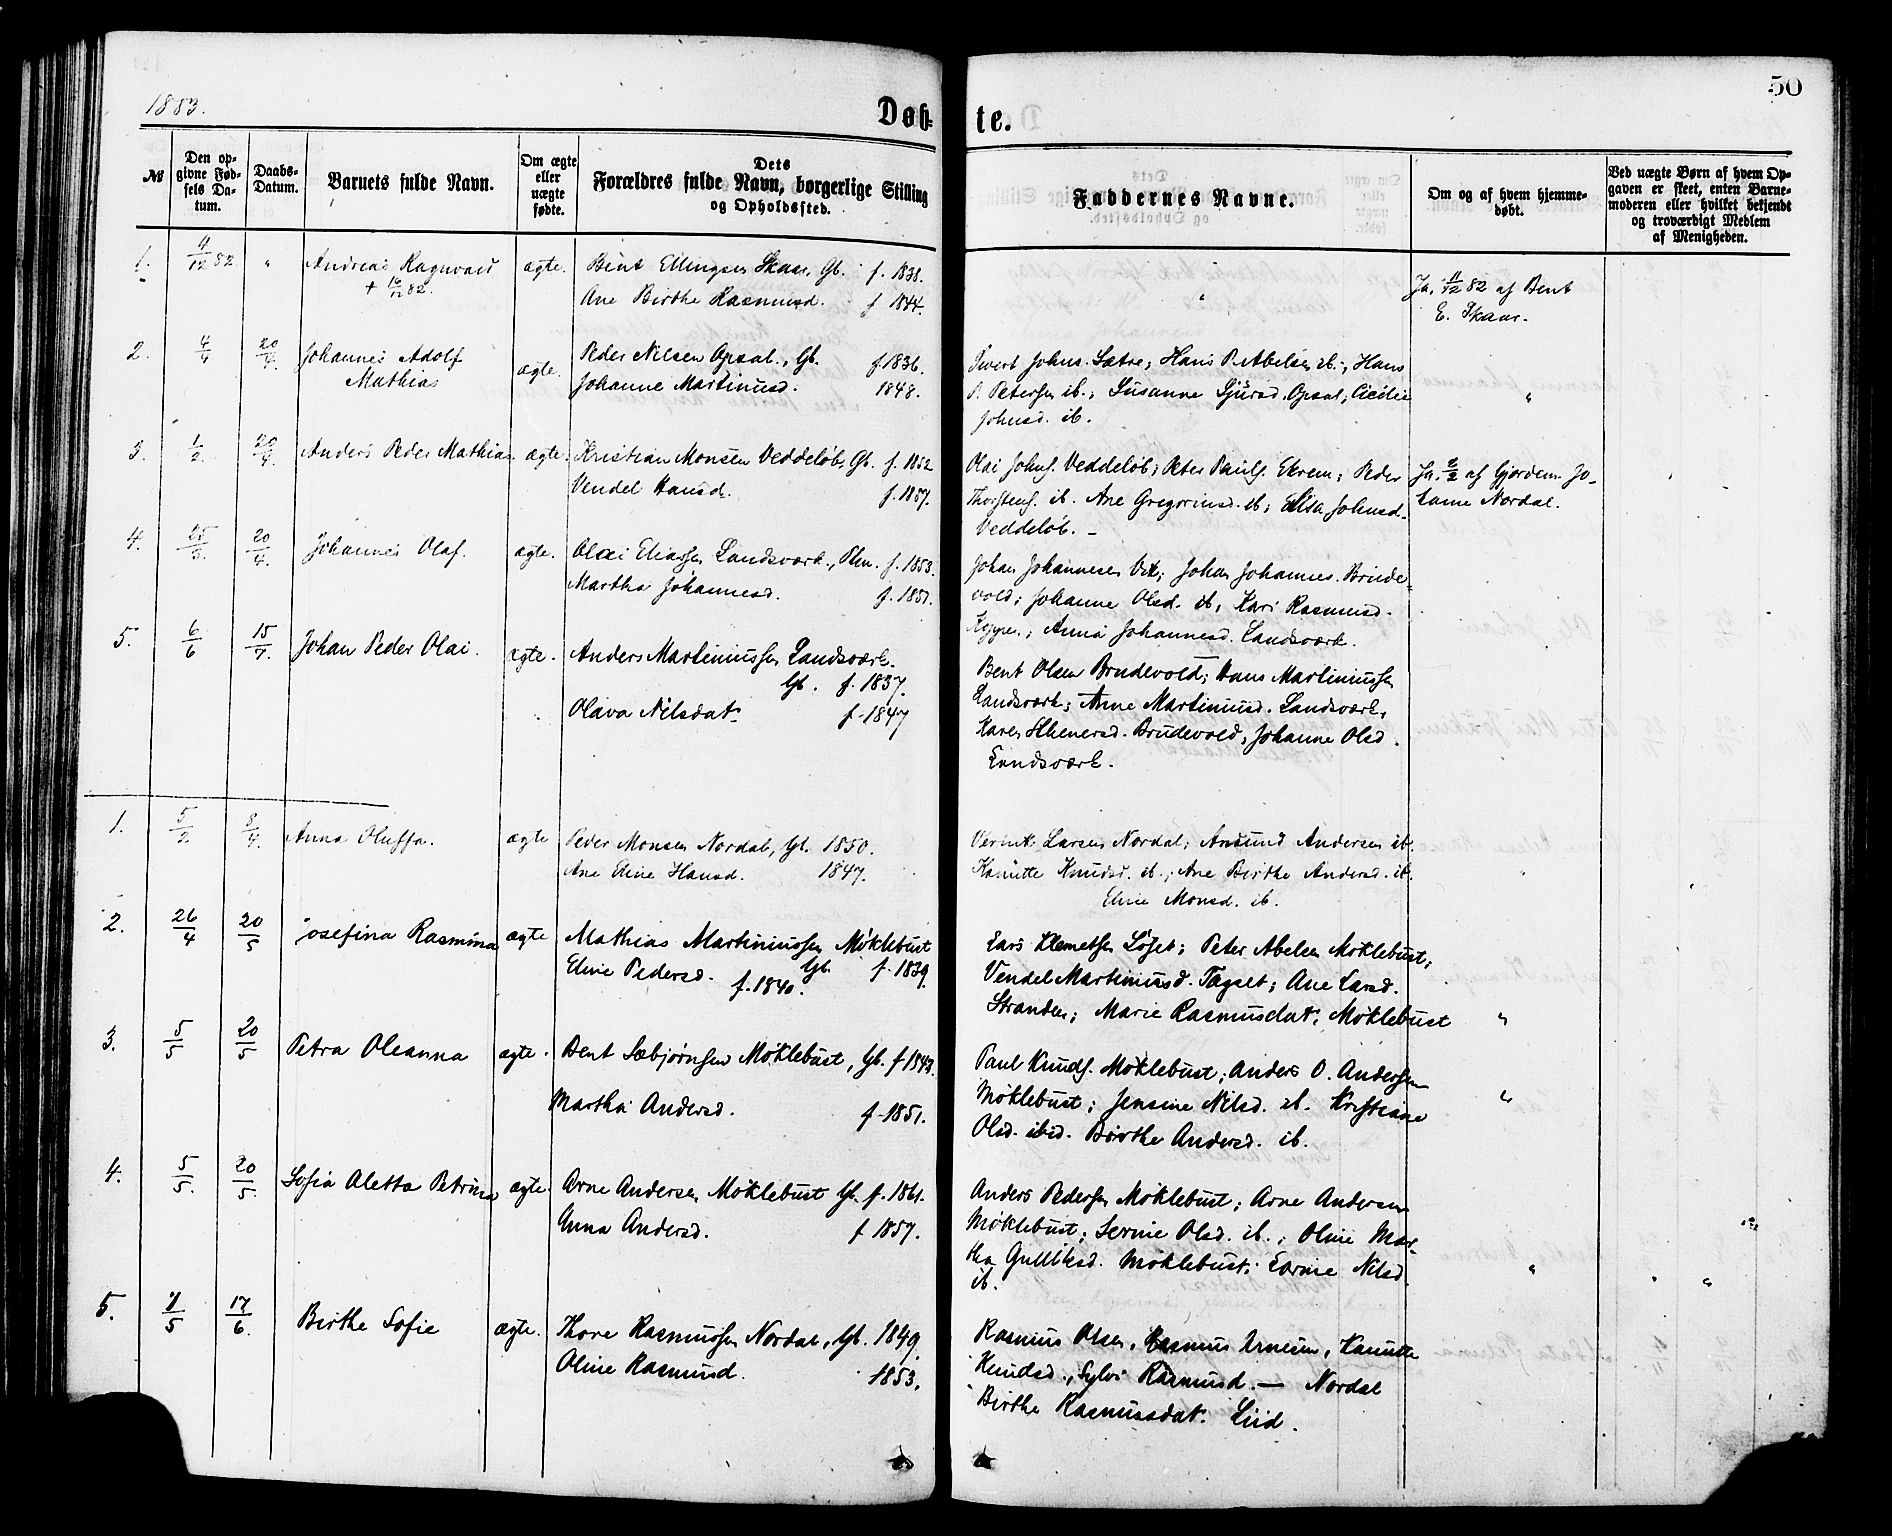 1883.
Døb-
te.
50
№
Den op-
givne Fød-
sels Da-
tum.
Daabs-
Datum.
Barnets fulde Navn.
Om ægte
eller
uægte
fødte.
Dets
Forældres fulde Navn, borgerlige Stilling
og Opholdssted.
Faddernes Navne.
Om og af hvem hjemme-
døbt.
Ved uægte Børn af hvem Op-
gaven er skeet, enten Barne-
moderen eller hvilket bekjendt
og troværdigt Medlem
af Menigheden.
1. 4/12 82 " Andreas Ragnvald ægte. Bent Ellingsen Skaar, Gb. f. 1838.
+ 16/12 82. Ane Birthe Rasmusd. f 1844.
" Ja, 11/12 82 af Bent
E. Skaar.
2. 4/4 20/4. Johannes Adolf
Mathias ægte.
Peder Nilsen Opsal, Gb. f. 1836.
Johanne Martinusd. 1848.
Sivert Johns. Sætre, Hans P. Abelsen ib., Hans
P. Petersen ib.; Susanne Sjursd. Opsal; Cicilie
Johnsd. ib.
"
3. 1/2. 20/4. Anders Peder Mathias. ægte. Kristian Monsen Veddeløb, Gb. f. 1852
Vendel Hansd. f. 1857.
Olai Johns. Veddeløb; Peter Pauls. Ekrem; Peder
Thorstens. ib. Ane Gregoriusd. ib; Elisa Johnsd.
Veddeløb. –
Ja, 2/2 af Gjordem. Jo-
hanne Nordal.
4. 20/4. Johannes Olaf. ægte. Olai Eliassen Landsværk, f. 1853.
Martha Johannesd. f. 1851.
Johan Johannesen Vik; Johan Johannes. Brude-
vold; Johanne Olsd. ib, Kari Rasmusd.
Anna Johannesd. Landsværk.
5. 6/6 15/7. Johan Peder Olai. ægte. Anders Martiniussen Landsværk.
Gb. f. 1837.
Olava Nilsdat. f. 1847
Bent Olsen Brudevold; Hans Martiniussen
Landsværk; Anne Martinusd. Landsværk,
Karen Brudevold, Johanne Olsd.
Landsværk.
1. 5/2 8/4. Anna Oluffa. ægte Peder Monsen Nordal, Gb. 1850.
Ane Eline Hansd. 1847.
Larsen Nordal; Amund Andersen ib.
Kanutte Knudsd. ib.; Ane Birthe Andersd. ib.
Eline Monsd. ib.
2. 26/4 20/5 Josefina Rasmina ægte Mathias Martiniussen Møklebust
Gb. f. 1839.
Eline Pedersd. f. 1840.
Lars Klemetsen Løset; Peter Abelsen Møklebust;
Vendel Martinusd. Ane Larsd.
Stranden; Marie Rasmusdat. Møklebust "
3. 5/5 20/5 Petra Oleanna ægte. Bent Sæbjørnsen Møklebust, Gb. f 1843.
Martha Andersd. f. 1851.
Paul Knuds. Møklebust; Anders O. Andersen
Møklebust; Jensine Nilsd. ib. Kristiane
Olsd. ibid. Birthe Andersd. ib.
"
4. 5/5. 20/5. Sofia Aletta Petrina ægte. Arne Andersen Møklebust Gb. f. 1861.
Anna Andersd. f 1857.
Anders Pedersen Møklebust; Arne Andersen
Møklebust; Serine Olsd. ib.; Oline Mar-
tha Gulliksd. Møklebust; Nilsd.
ib.
" " "
5. 7/5 17/6. Berthe Sofie ægte. Thore Rasmussen Nordal, Gb. 1849.
Oline Rasmusd. 1853.
Rasmus Olsen, Rasmus Arnesen, Kanutte
Knudsd., Sylvi Rasmusd. — Nordal
Birthe Rasmussdat. Liid.